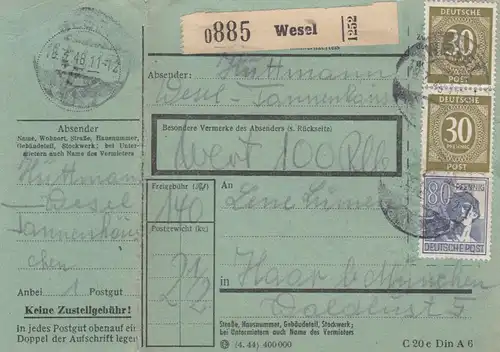 0885 Wesel 1252
6.4.48.11-12
Absender:
Huttmann
Wesel-Tannenhäus
Besondere Vermerke des Absenders (s. Rückseite)
Wert 100 RM
Absender
Name, Wohnort, Straße, Hausnummer,
Gebäudeteil, Stockwerk; bei Unter-
mietern auch Name des Vermieters
Huttmann
Wesel
Tannenhäus
chen
Anbei 1 Postgut
Keine Zustellgebühr!
In jedes Postgut obenauf ein
Doppel der Aufschrift legen
Freigebühr
140
Postgewicht (kg)
2 1/2
An
Lene
in Haar b München
Straße, Hausnummer, Gebäudeteil, Stockwerk;
bei Untermietern auch Name des Vermieters
(4. 44) 400 000
C 20 e Din A 6
DEUTSCHE
30
POST
DEUTSCHE
30
POST
80 PFENNIG
DEUTSCHE POST